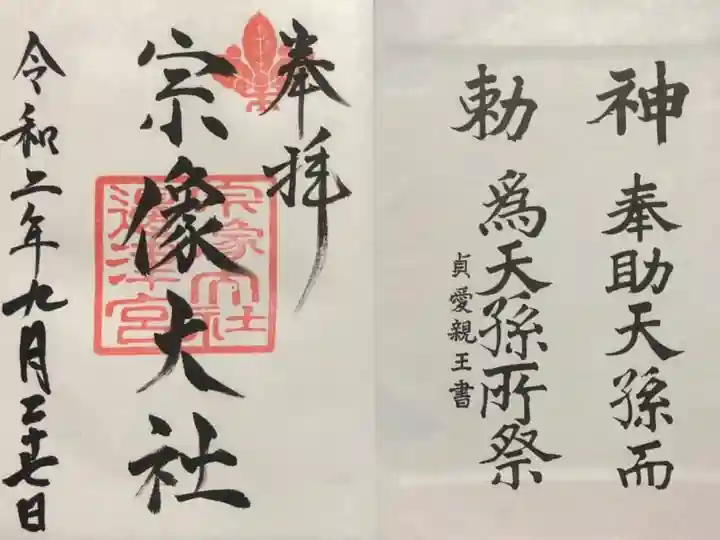 神勅
奉助天孫而
為天孫所祭
貞愛親王書
奉拝
宗像大社
宗像大社邊津宮
令和二年九月二十七日